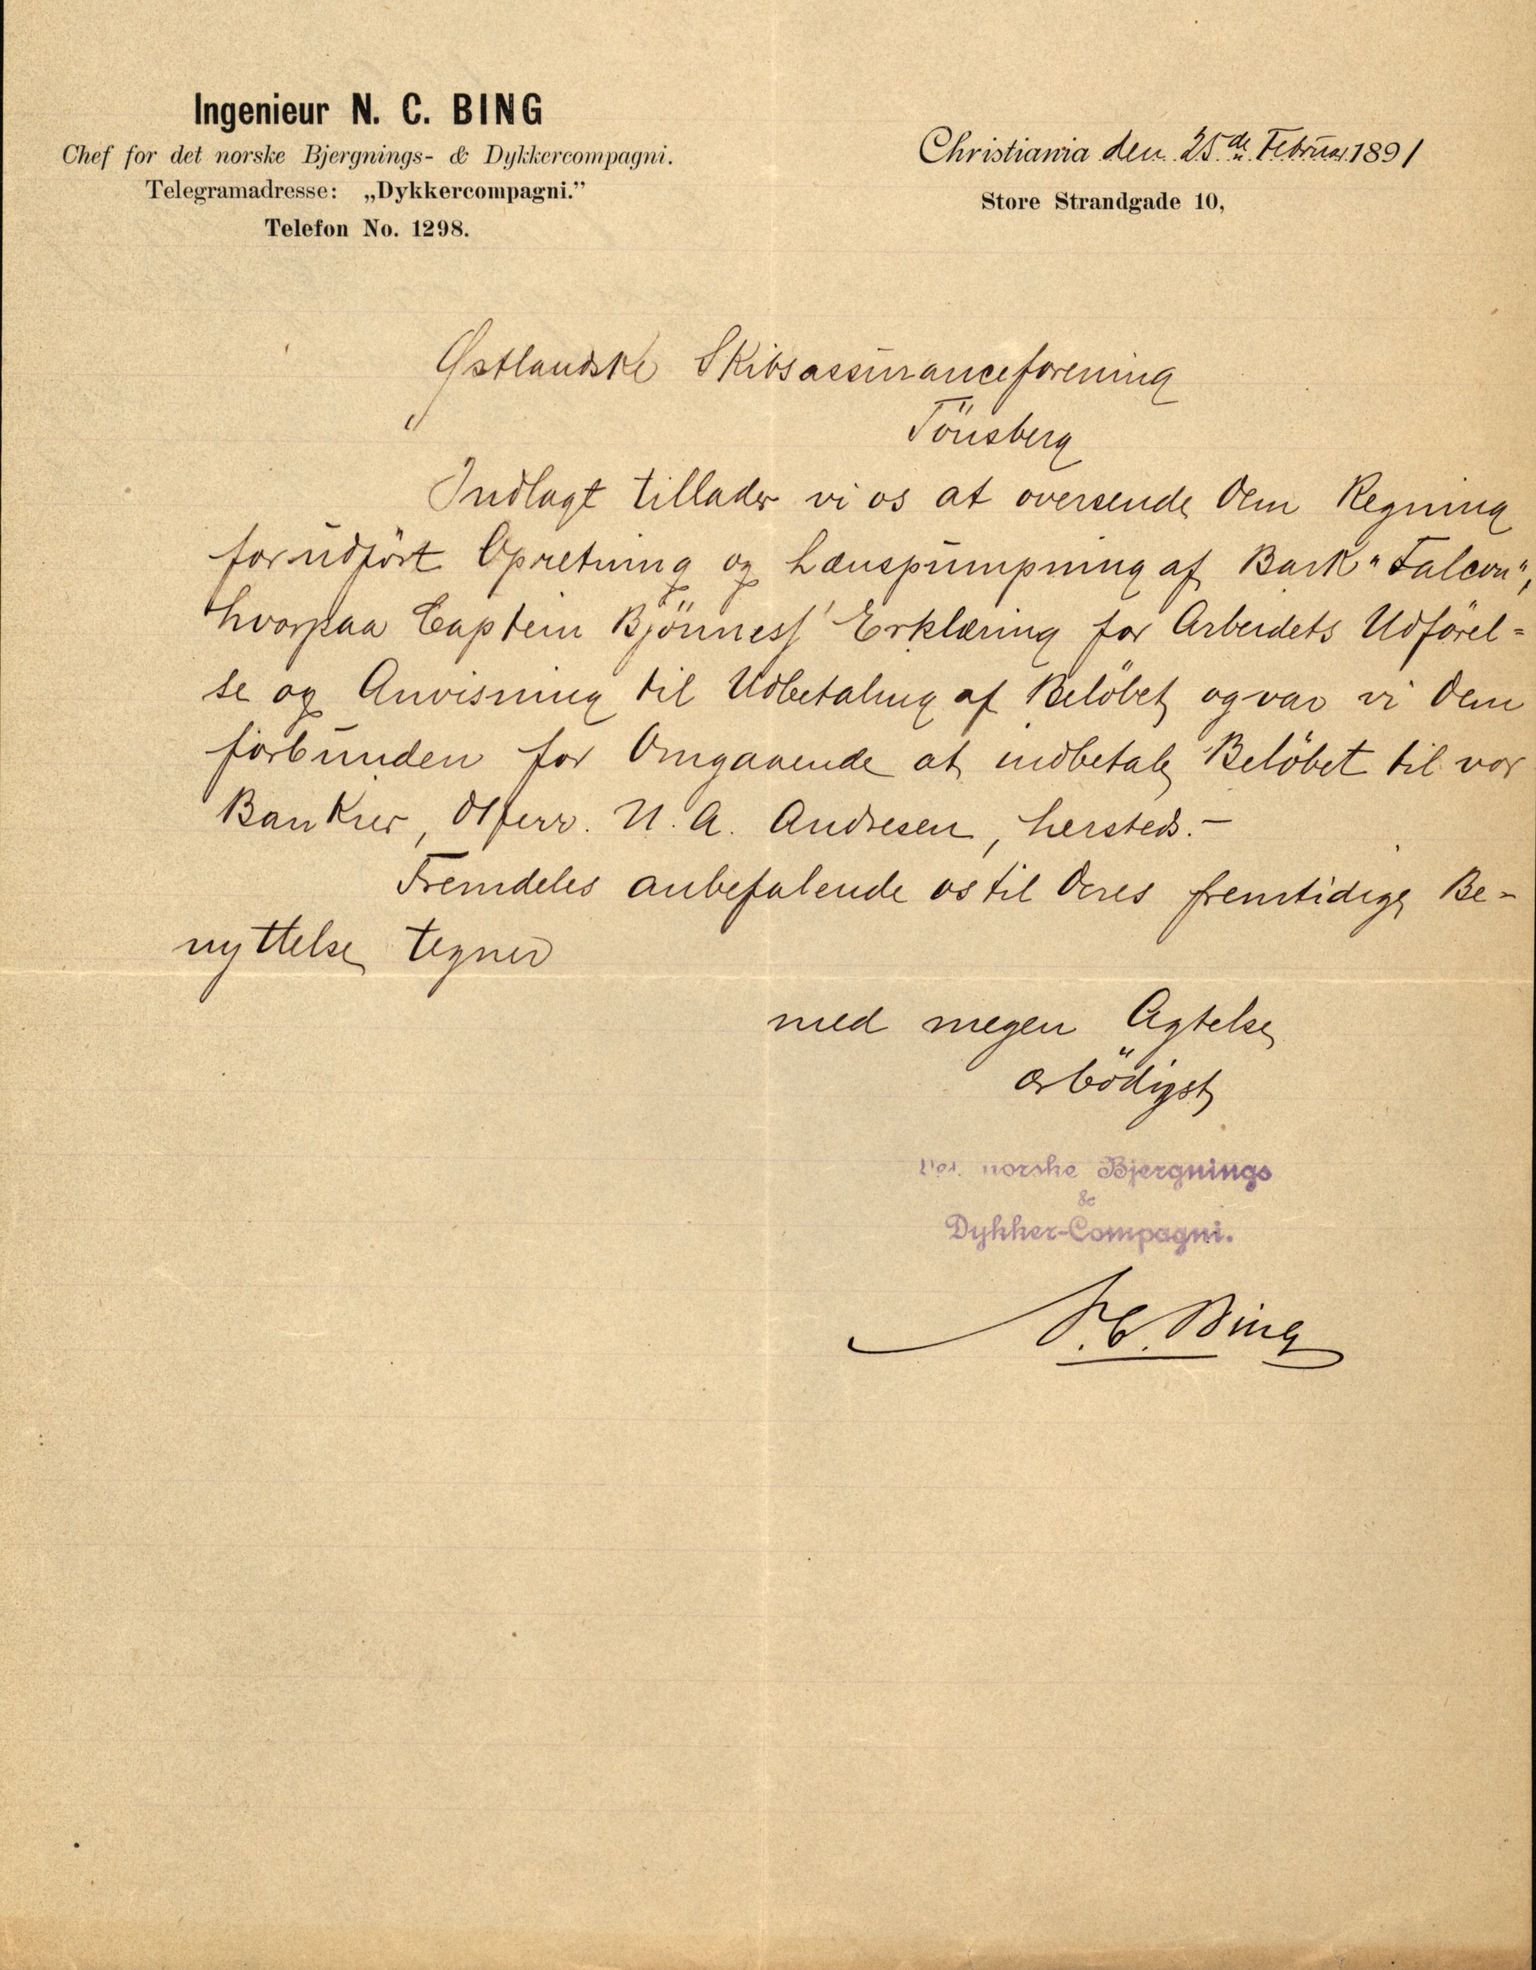 Ingenieur N. C. BING
Chef for det norske Bjergnings- & Dykkercompagni.
Telegramadresse: „Dykkercompagni.”
Telefon No. 1298.
Christiania den 25de Februar 1891
Store Strandgade 10,
Østlandske Skibsassuranceforening
Tönsberg
Indlagt tillader vi os at oversende Dem Regning
for udfört Opretning og Lænspumpning af Bark "Falcon",
hvorpaa Captein Bjönness' Erklæring for Arbeidets Udförel=
se og Anvisning til Udbetaling af Belöbet og var vi Dem
forbunden for Omgaaende at indbetale Belöbet til vor
Bankier, Herr. N. A. Andresen, hersteds.-
Fremdeles anbefalende os til Deres fremtidige Be-
nyttelse tegner
med megen Agtelse
ærbödigst
Det norske Bjergnings
&
Dykker-Compagni.
N. C. Bing